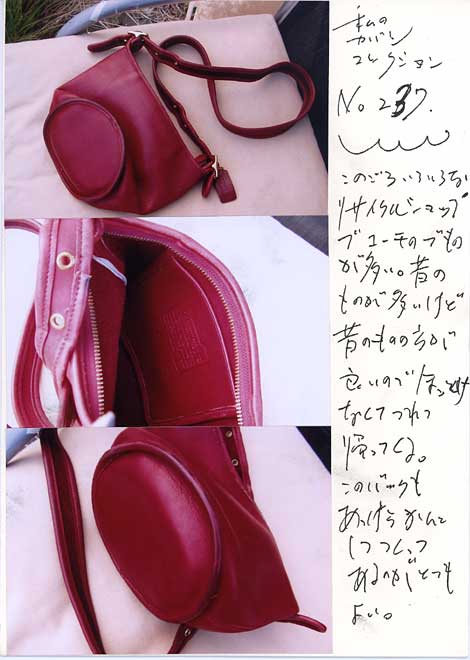 私の
カバン
コレクション
No 237.
このごろいろいろな
リサイクルショップ
でコーチのでもの
が多い。昔の
ものが多いけど
昔のものの方が
良いので
なくてつれて
帰ってくる。
このバックも
あっけらかんと
しつつくって
あるのがとても
よい。